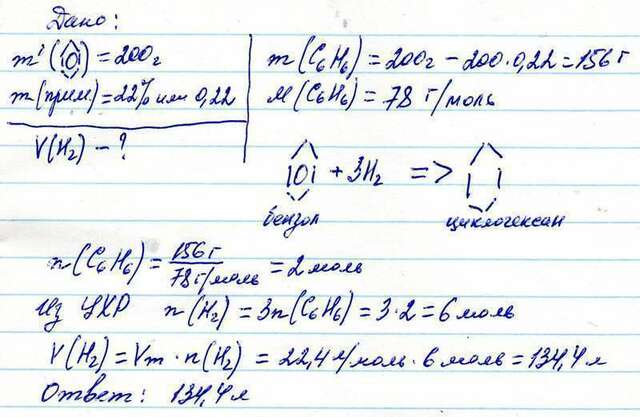 Дано:
m'(⌬) = 200г
m(прим) = 22% или 0,22
V(H₂) - ?
m(C₆H₆) = 200г - 200·0,22 = 156г
M(C₆H₆) = 78 г/моль
+ 3H₂ =>
бензол циклогексан
n(C₆H₆) = 156г / 78г/моль = 2 моль
Из УХР n(H₂) = 3n(C₆H₆) = 3·2 = 6 моль
V(H₂) = Vm · n(H₂) = 22,4 л/моль · 6 моль = 134,4 л
Ответ: 134,4 л